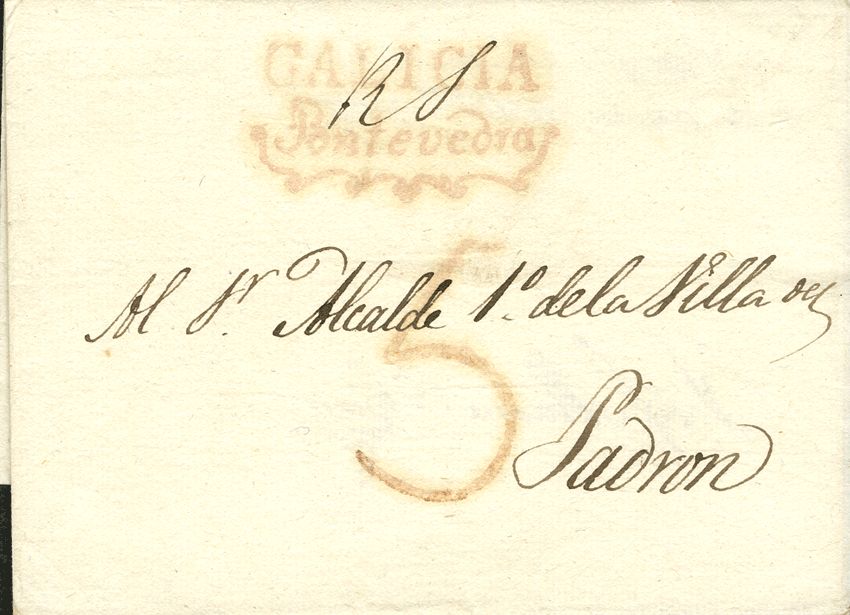 GALICIA
R S
Pontevedra
5
Al Sr. Alcalde 1º. de la Villa de
Padron